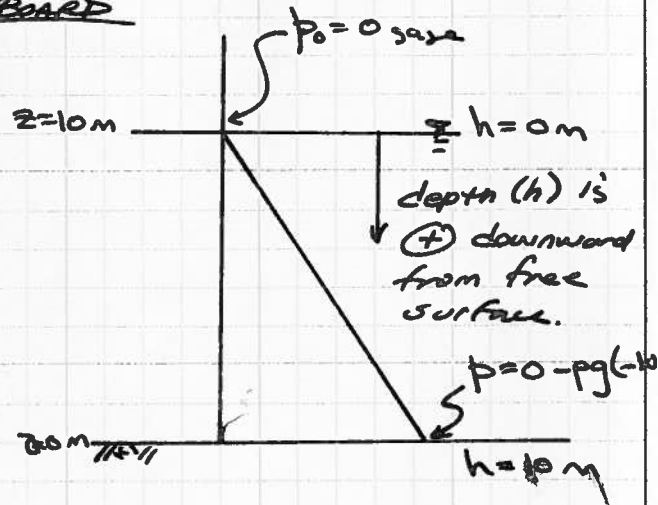 BOARD
p₀ = 0 gage
z=10m
h=0m
depth (h) is
⊕ downward
from free
surface.
p=0-ρg(-10
z=0m
h=10m